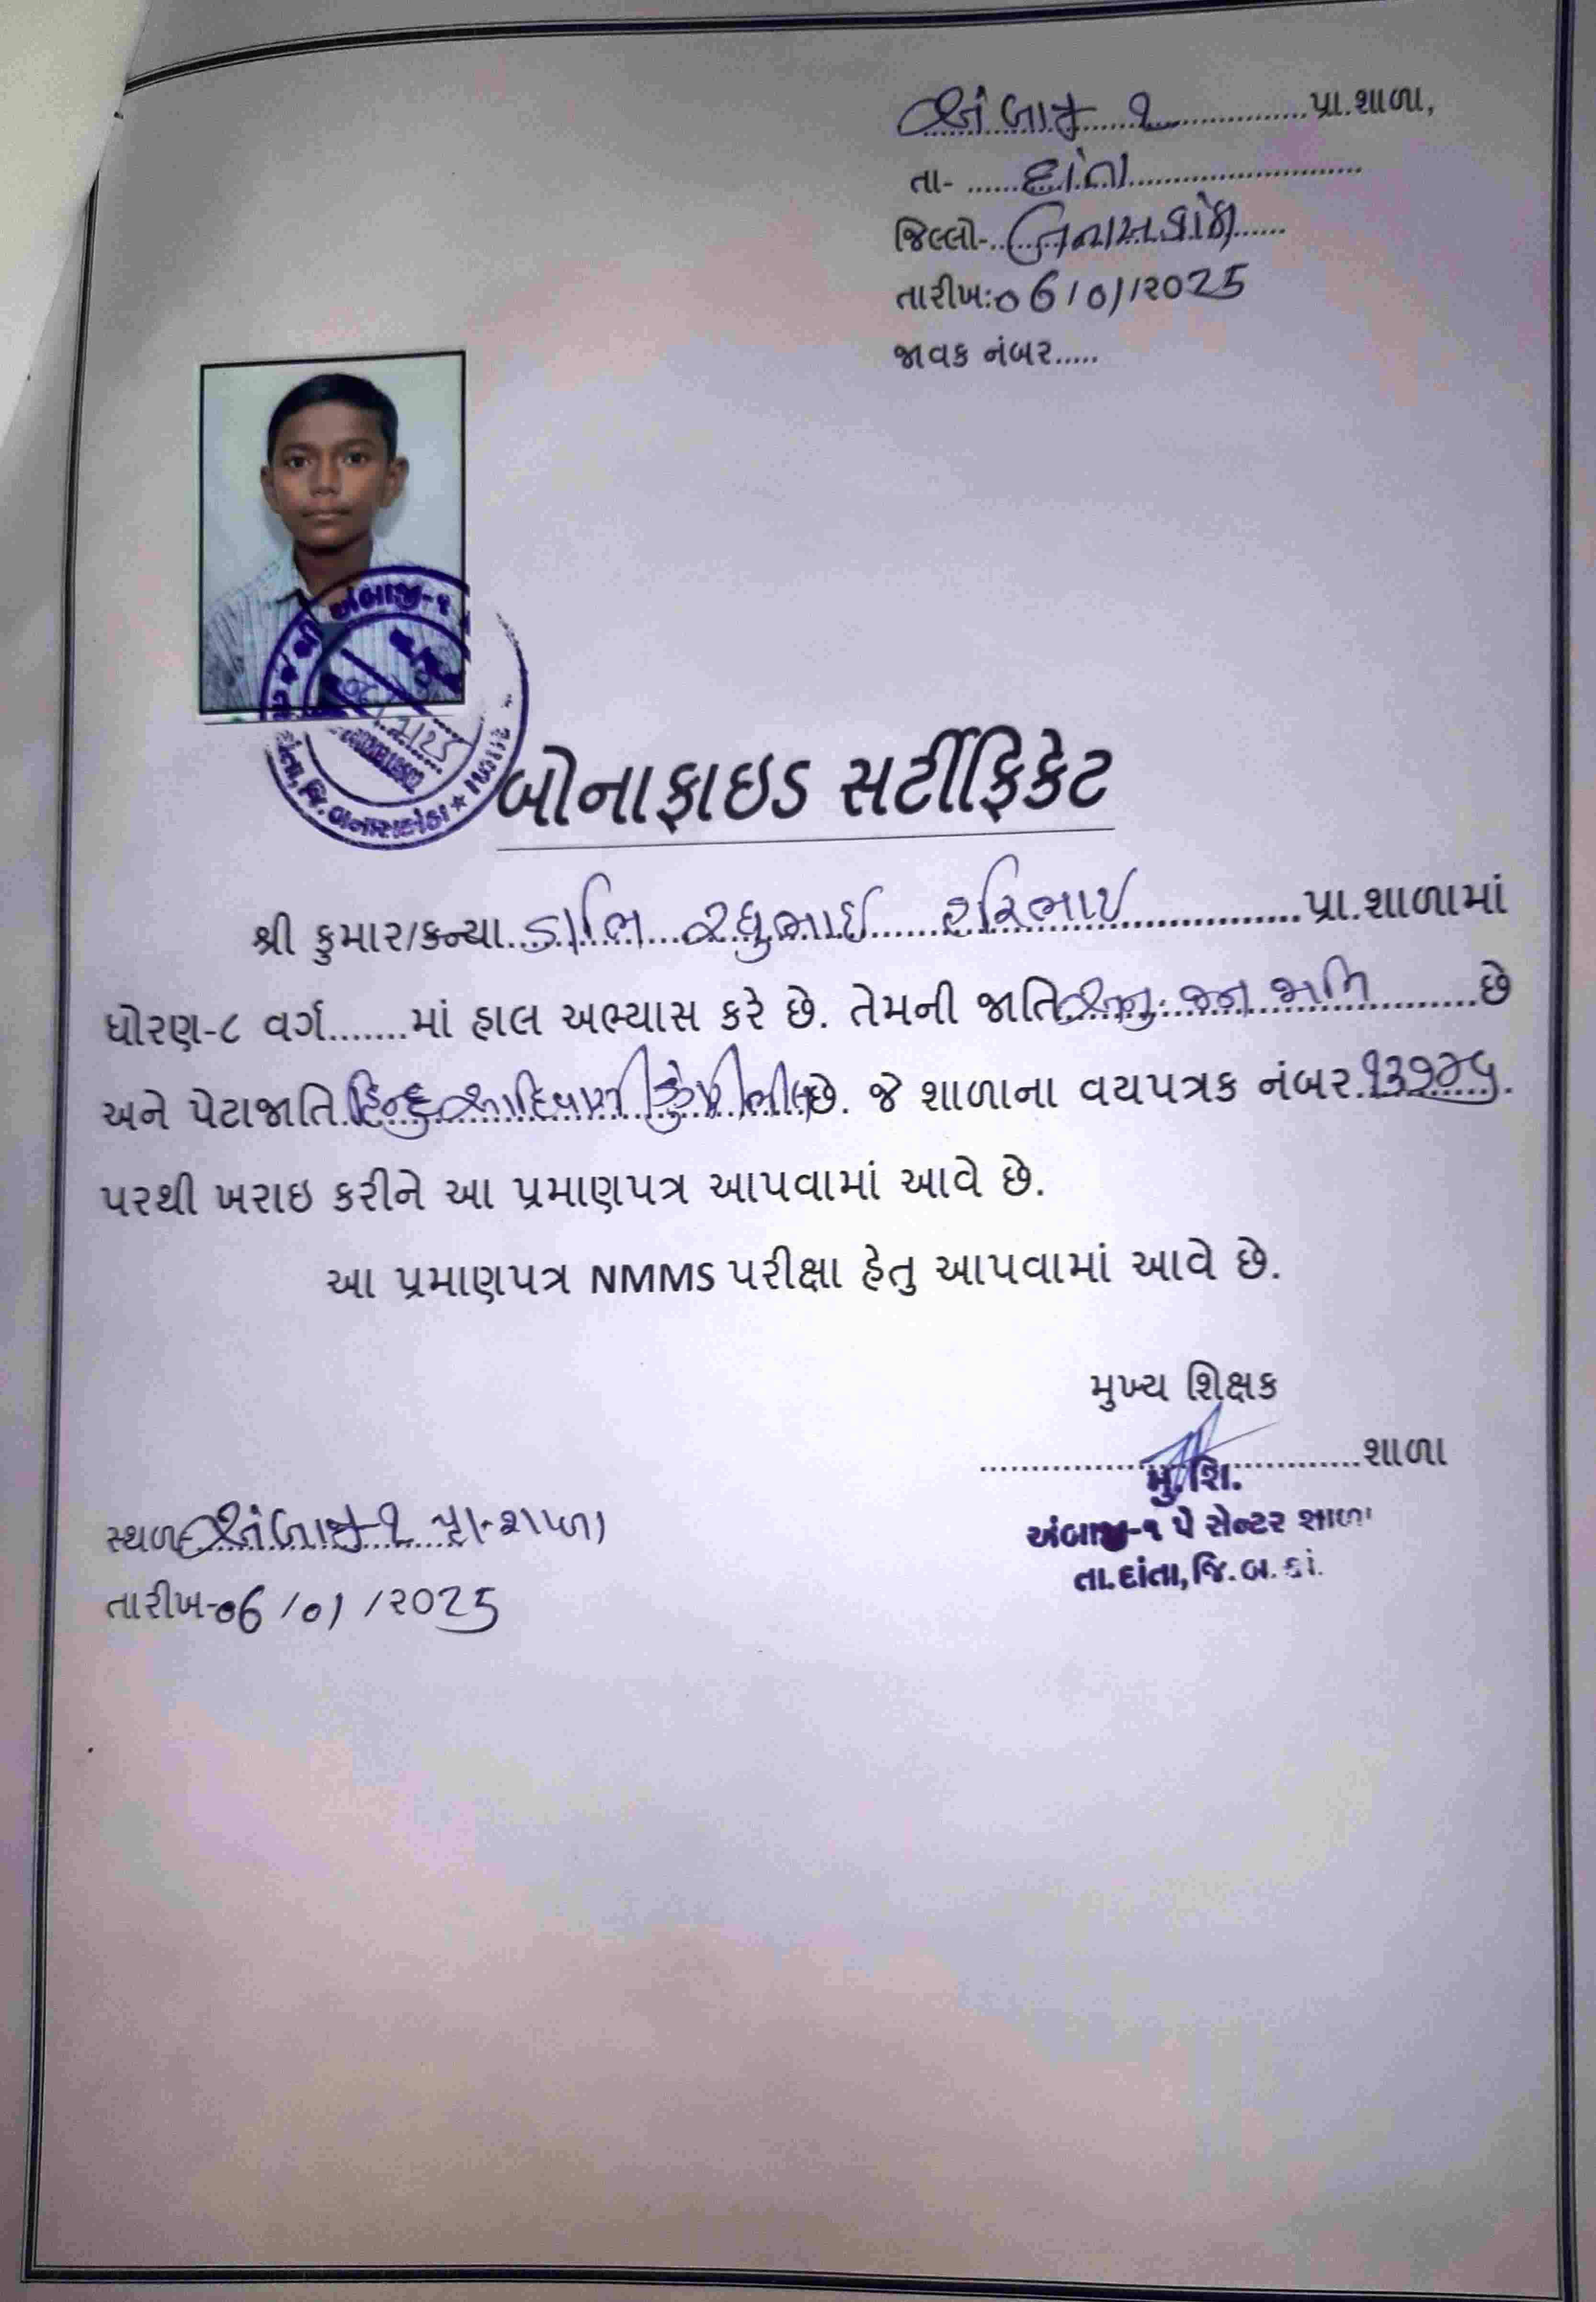 અંબાજી ૧ પ્રા.શાળા,
તા- દાંતા
જિલ્લો- બનાસકાંઠા
તારીખ:06/01/૨025
જાવક નંબર.....
અંબાજી-૧
તા. દાંતા, જિ. બનાસકાંઠા
બોનાફાઇડ સર્ટીફિકેટ
શ્રી કુમાર/કન્યા ડાભિ રઘુભાઇ હરિભાઇ પ્રા.શાળામાં
ધોરણ-૮ વર્ગ.......માં હાલ અભ્યાસ કરે છે. તેમની જાતિ અનુ. જન જાતિ છે
અને પેટાજાતિ હિન્દુ આદિવાસી ભીલ છે. જે શાળાના વયપત્રક નંબર
પરથી ખરાઇ કરીને આ પ્રમાણપત્ર આપવામાં આવે છે.
આ પ્રમાણપત્ર NMMS પરીક્ષા હેતુ આપવામાં આવે છે.
મુખ્ય શિક્ષક
શાળા
મુ.શિ.
અંબાજી-૧ પે સેન્ટર શાળા
તા.દાંતા, જિ.બ.કાં.
સ્થળ- અંબાજી-૧ પ્રા-શાળા
તારીખ-06/01/૨025